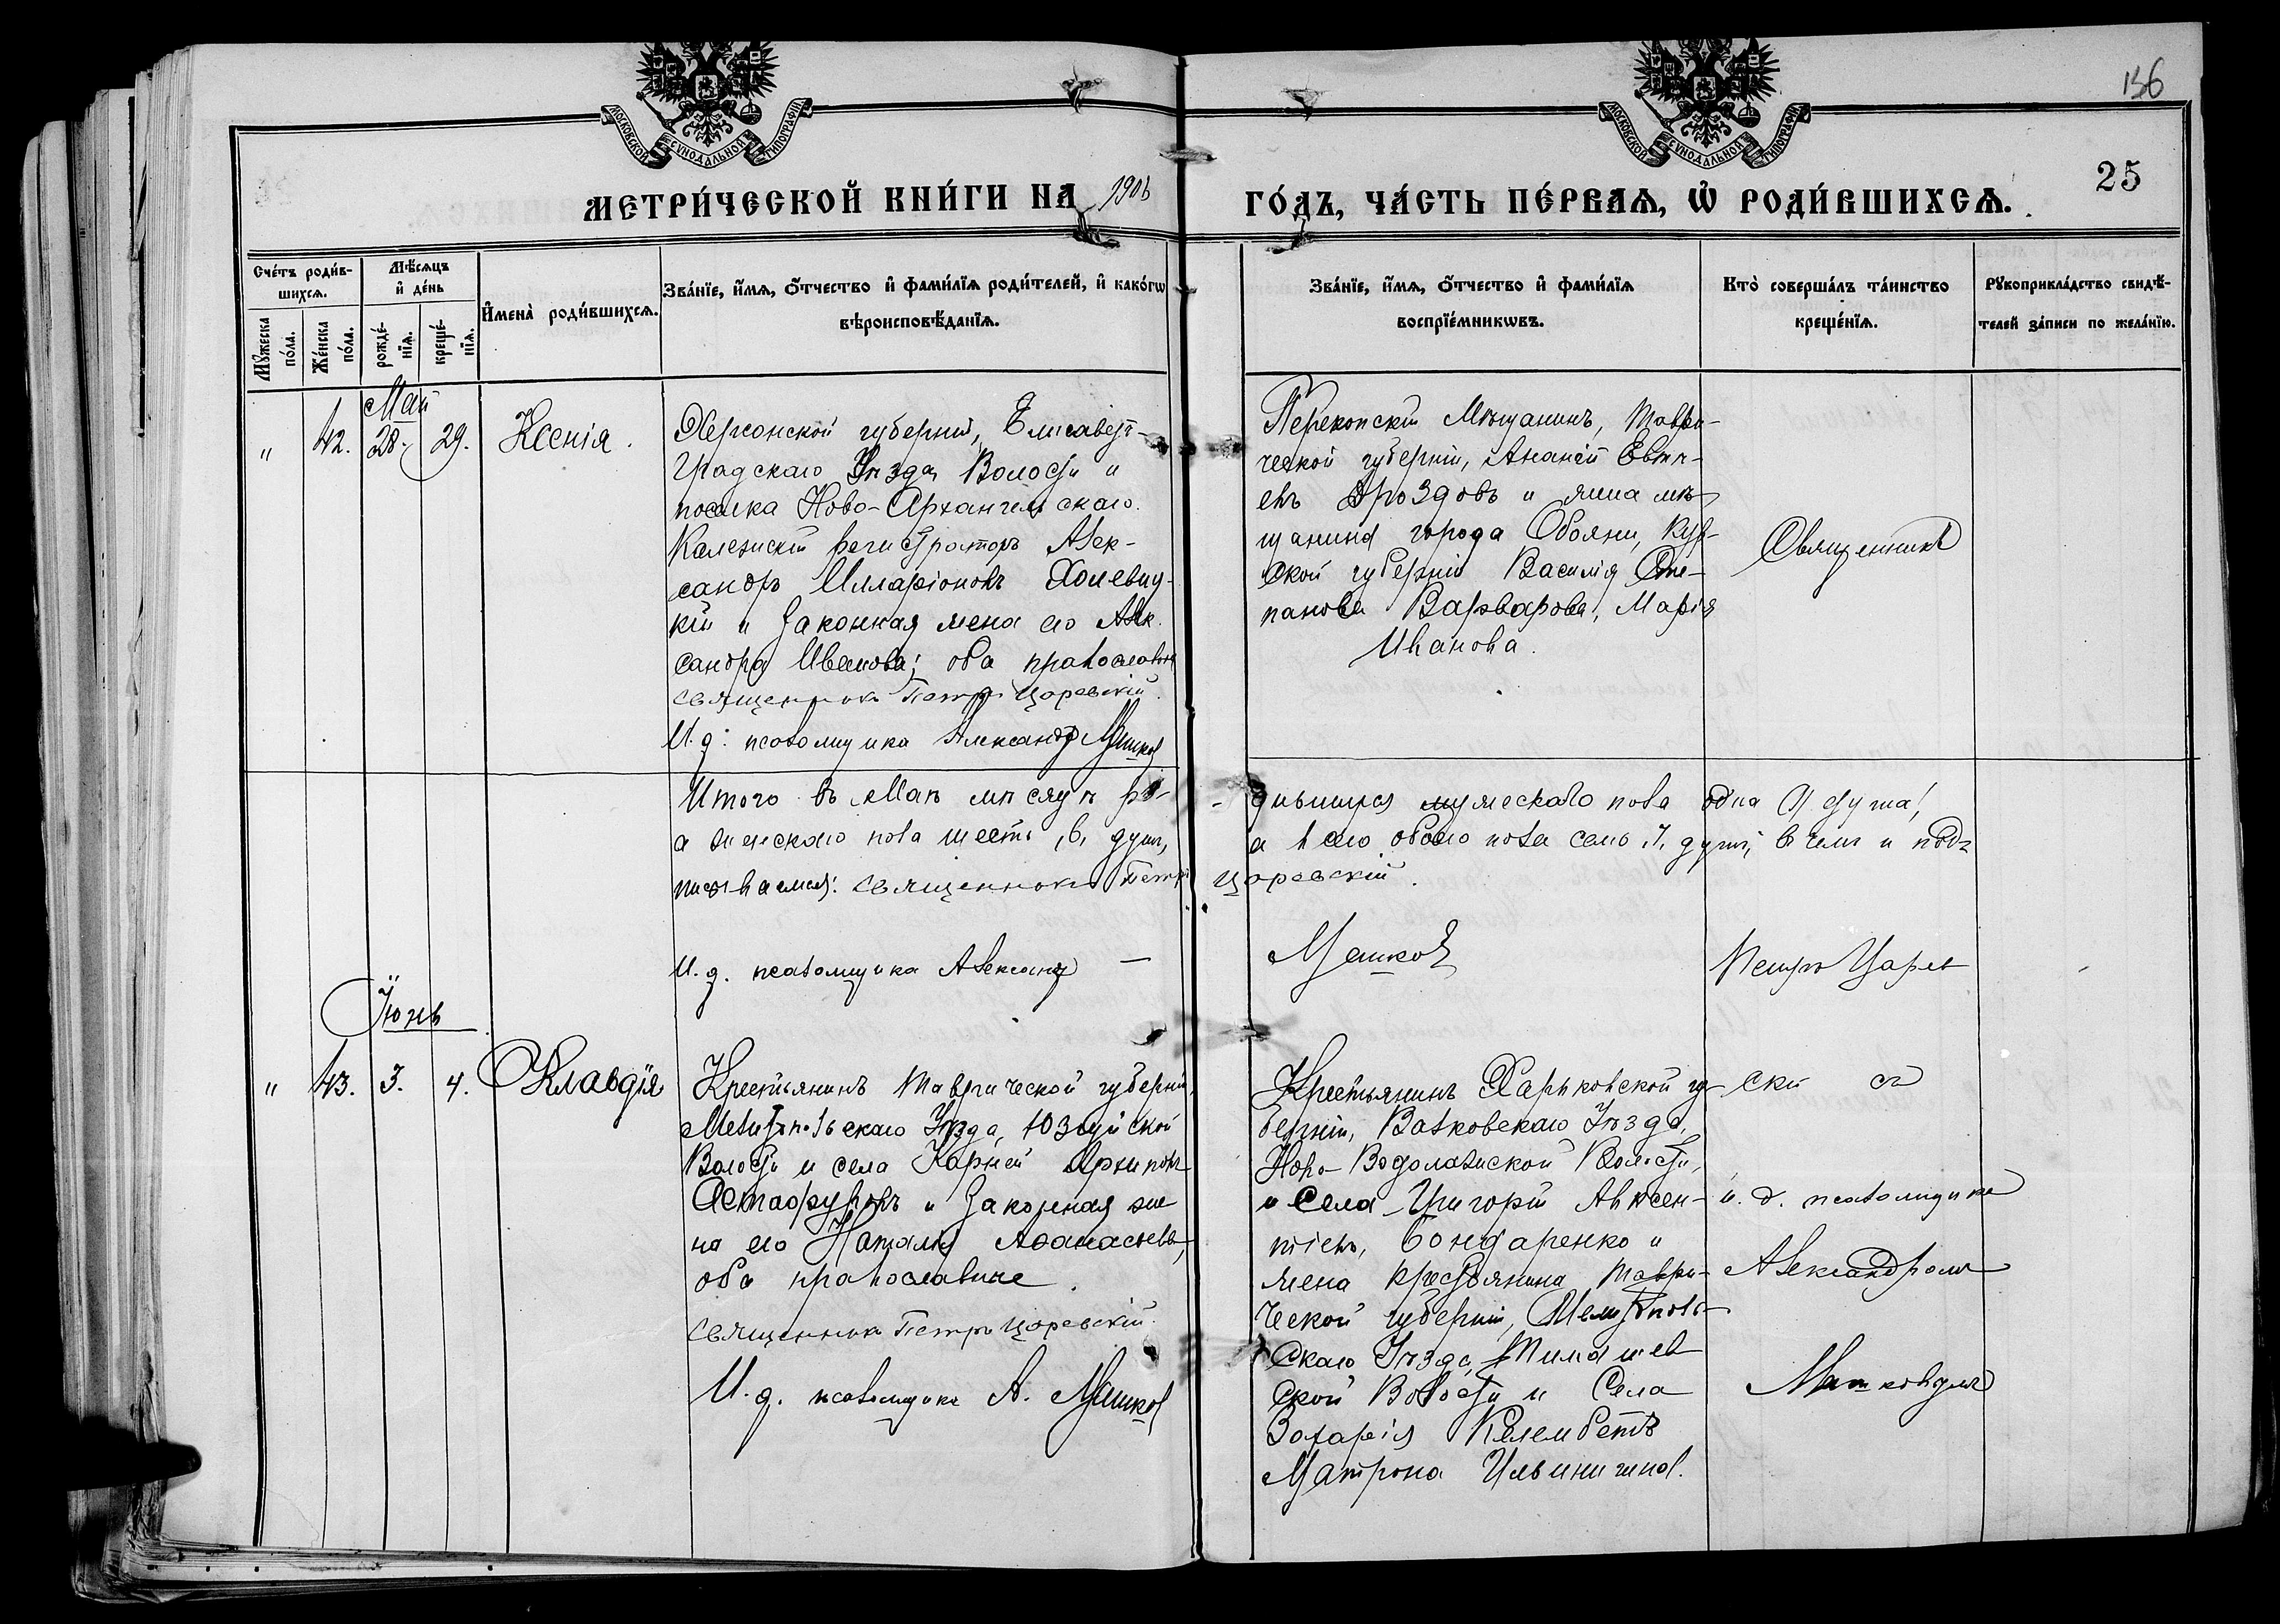 МОСКОВСКОЙ СѴНОДАЛЬНОЙ ТИПОГРАФІИ
МОСКОВСКОЙ СѴНОДАЛЬНОЙ ТИПОГРАФІИ
136
25
МЕТРИ́ЧЕСКОЙ КНИ́ГИ НА 1906 ГО́ДЪ, ЧА́СТЬ ПЕ́РВАѦ, Ѡ҆ РОДИ́ВШИХСѦ.
Сче́тъ роди́в-
шихсѧ.
Мꙋ́жеска
по́ла.
Же́нска
по́ла.
Мѣ́сѧцъ
и҆ де́нь
рожде́-
нїѧ.
креще́-
нїѧ.
И҆мена̀ роди́вшихсѧ.
Зва́нїе, и҆́мѧ, ѻ҆́тчество и҆ фами́лїѧ роди́телей, и҆ како́гѡ
вѣроисповѣ́данїѧ.
Зва́нїе, и҆́мѧ, ѻ҆́тчество и҆ фами́лїѧ
воспрїе́мникѡвъ.
Кто̀ соверша́лъ та́инство
креще́нїѧ.
Рꙋкоприкла́дство свидѣ́-
телей за́писи по жела́нїю.
Май
" 42. 28. 29. Ксенія.
Херсонской губерніи, Елисавет-
градскаго Уѣзда, Волости и
поселка Ново-Архангельскаго.
Колежскій регистраторъ Алек-
сандръ Илларіоновъ Холевиц-
кій и законная жена его Алек
сандра Иванова; оба православн
священникъ Петръ Царевскій.
И. д. псаломщика Александр Машков
Перекопскій Мѣщанинъ, Таври-
ческой губерніи, Ананій Евтѣ-
евъ Дроздовъ и жена мѣ
щанина города Обояни, Кур-
ской губерніи Василія Сте-
панова Варварова, Марія
Иванова.
Священникъ
Итого въ Маѣ мѣсяцѣ ро- - дившихся мужескаго пола одна (1) душа,
а женскаго пола шесть (6) душъ, а всего обоего пола семь (7) душъ, в чемъ и под-
писываемся: священникъ Петръ Царевскій.
И. д. псаломщика Александр — Машков
Петръ Царев
Іюнь
" 43. 3. 4. Клавдія
Крестьянинъ Таврической губерніи,
Мелитопольскаго Уѣзда,
Волости и села Карней Архиповъ
и законная же
на его Наталія Аѳанасьева,
оба православные.
священникъ Петръ Царевскій.
И. д. псаломщика А. Машков
Крестьянинъ Харьковской гу-
берніи, Валковскаго Уѣзда,
Ново-Водолажской Волости,
и Села Григорій Авксен-
тіевъ, Бондаренко и
жена крестьянина Таври-
ческой губерніи, Мелитополь-
скаго Уѣзда, Тимашев
ской Волости и Села
Захарія Келембетъ
Матрона Ильинична.
скій съ
и. д. псаломщика
Александромъ
Машковымъ